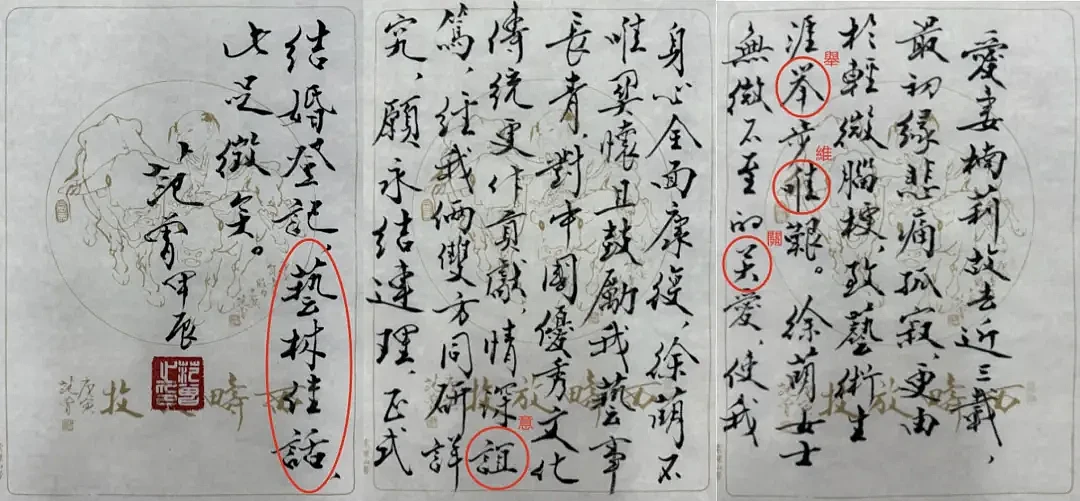 愛妻楠莉故去近三載，
最初缘悲痛孤寂，更由
於輕微腦梗，致藝術生
涯举步唯艱。徐萌女士
無微不至的关愛，使我
舉
維
關
身心全面康復，徐萌不
唯契懷且鼓勵我藝事
長青，對中國優秀文化
傳統更作貢獻，情深誼
篤，经我俩雙方同研詳
究，願永结連理，正式
意
结婚登記，藝林佳話，
此足徵矣。
范曾甲辰
西疇放牧
庚寅